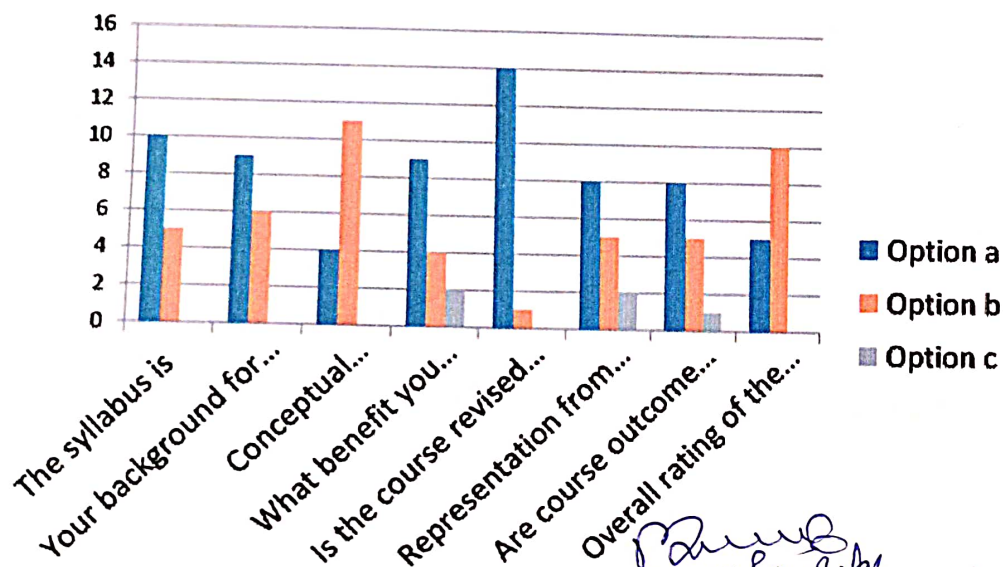 16
14
12
10
8
6
4
2
0
The syllabus is
Your background for...
Conceptual...
What benefit you...
Is the course revised...
Representation from...
Are course outcome...
Overall rating of the...
Option a
Option b
Option c